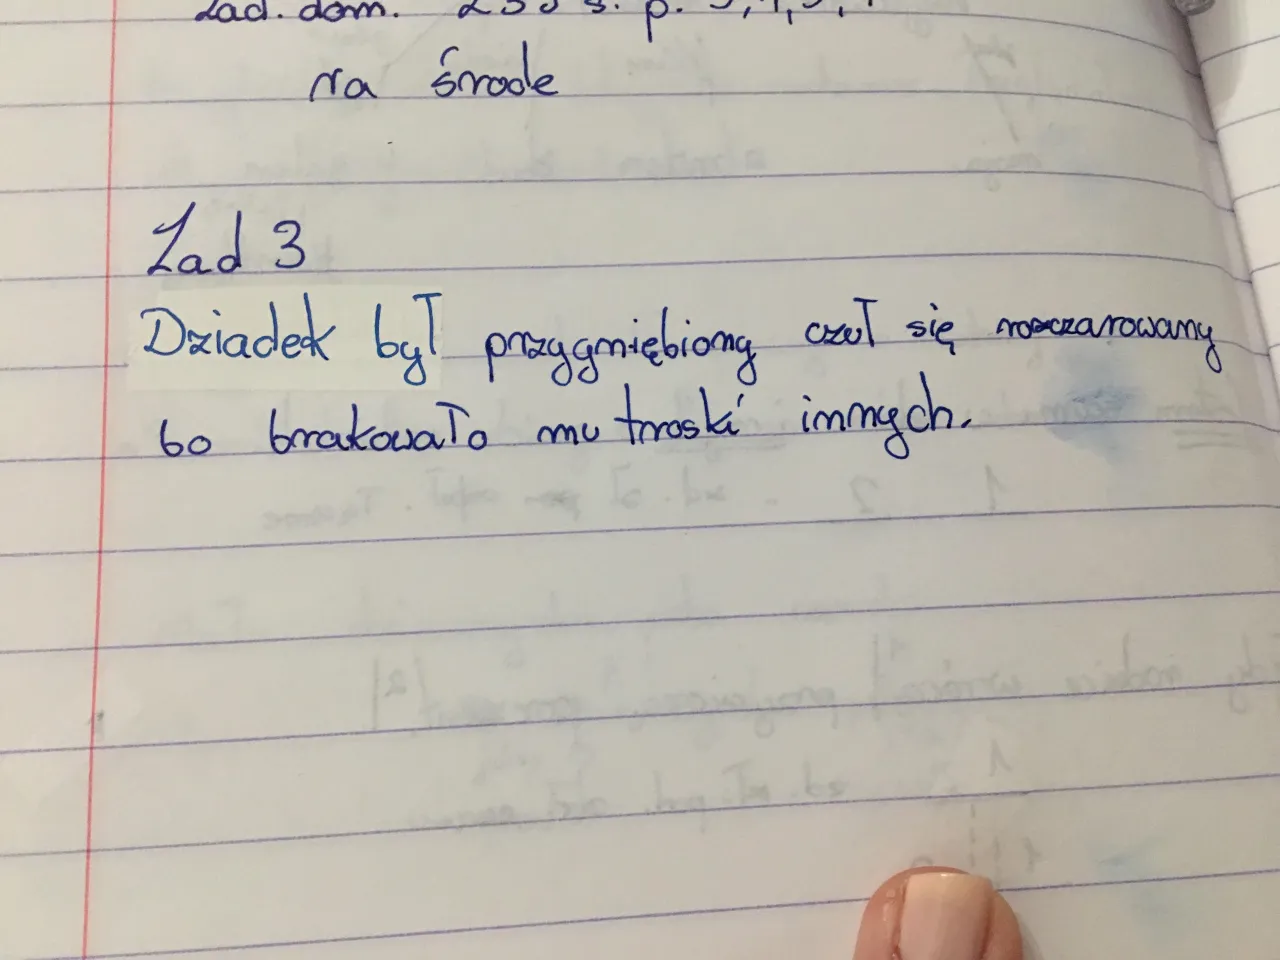 Zad. dom. s. p.
na środe
Zad 3
Dziadek był przygniębiony czuł się rozczarowany
bo brakowało mu troski innych.